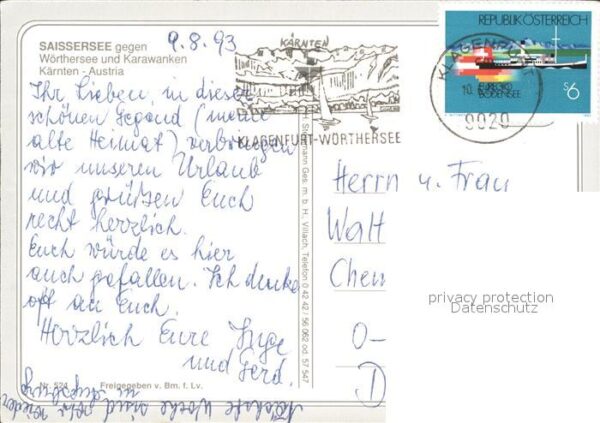 SAISSERSEE gegen
Wörthersee und Karawanken
Kärnten - Austria
9.8.93
Ihr Lieben, in dieser
schönen Gegend (meine
alte Heimat) verbringen
wir unseren Urlaub
und grüßen Euch
recht herzlich.
Euch würde es hier
auch gefallen. Ich denke
oft an Euch.
Herzlich Eure Inge
und Gerd.
Nr. 524 Freigegeben v. Bm. f. Lv.
Nächste Woche sind wir wieder
in Augsburg
Ges. m. b. H., Villach, Telefon 0 42 42 / 56 062 od. 57 547
KÄRNTEN
KLAGENFURT-WÖRTHERSEE
KLAGENFURT
10.
9020
REPUBLIK ÖSTERREICH
BODENSEE
S 6
Herrn u. Frau
Walt
Chem
O-
D
privacy protection
Datenschutz